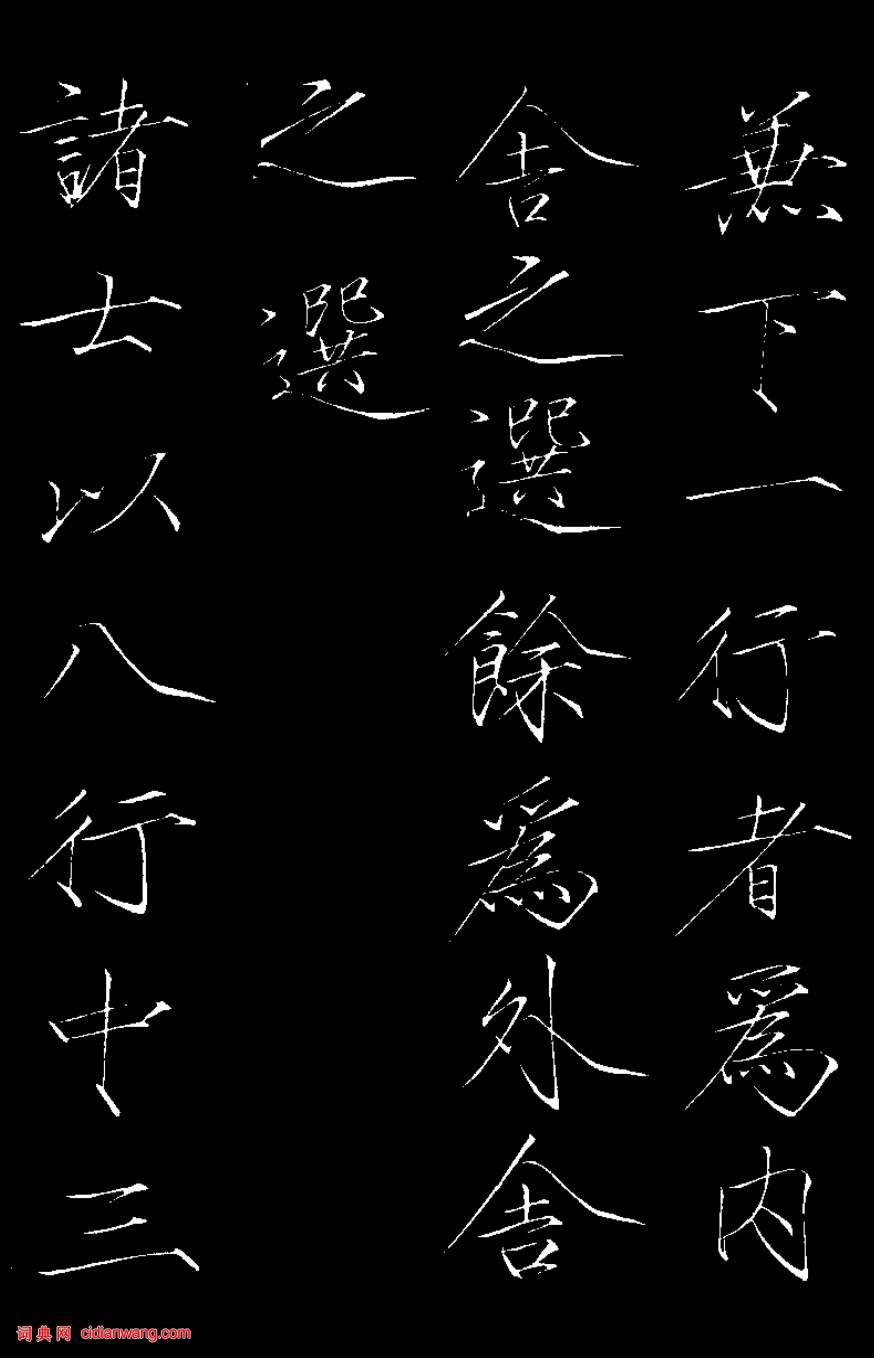 兼下一行者為内
舍之選選餘為外舍
之選
諸士以八行中三
词典网 cidianwang.com